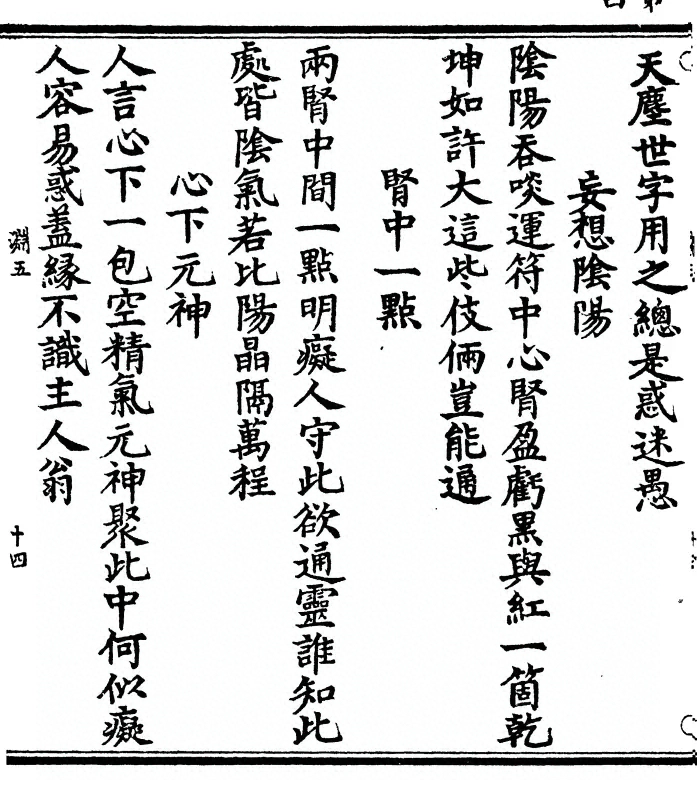 天塵世字用之總是惑迷愚
妄想陰陽
陰陽吞啖運符中心腎盈虧黑與紅一箇乾
坤如許大這些伎倆豈能通
腎中一點
兩腎中間一點明癡人守此欲通靈誰知此
處皆陰氣若比陽晶隔萬程
心下元神
人言心下一包空精氣元神聚此中何似癡
人容易惑蓋緣不識主人翁
淵五
十四